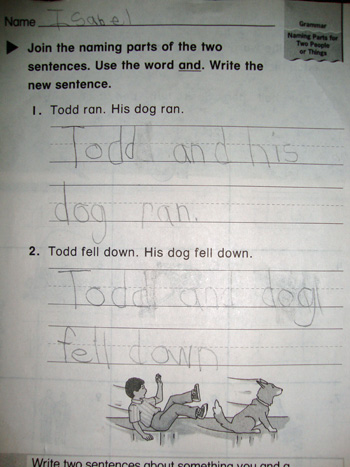 Name Isabel
Grammar
Naming Parts for
Two People
or Things
Join the naming parts of the two
sentences. Use the word and. Write the
new sentence.
1. Todd ran. His dog ran.
Todd and his
dog ran.
2. Todd fell down. His dog fell down.
Todd and dog
fell down
Write two sentences about something you and a